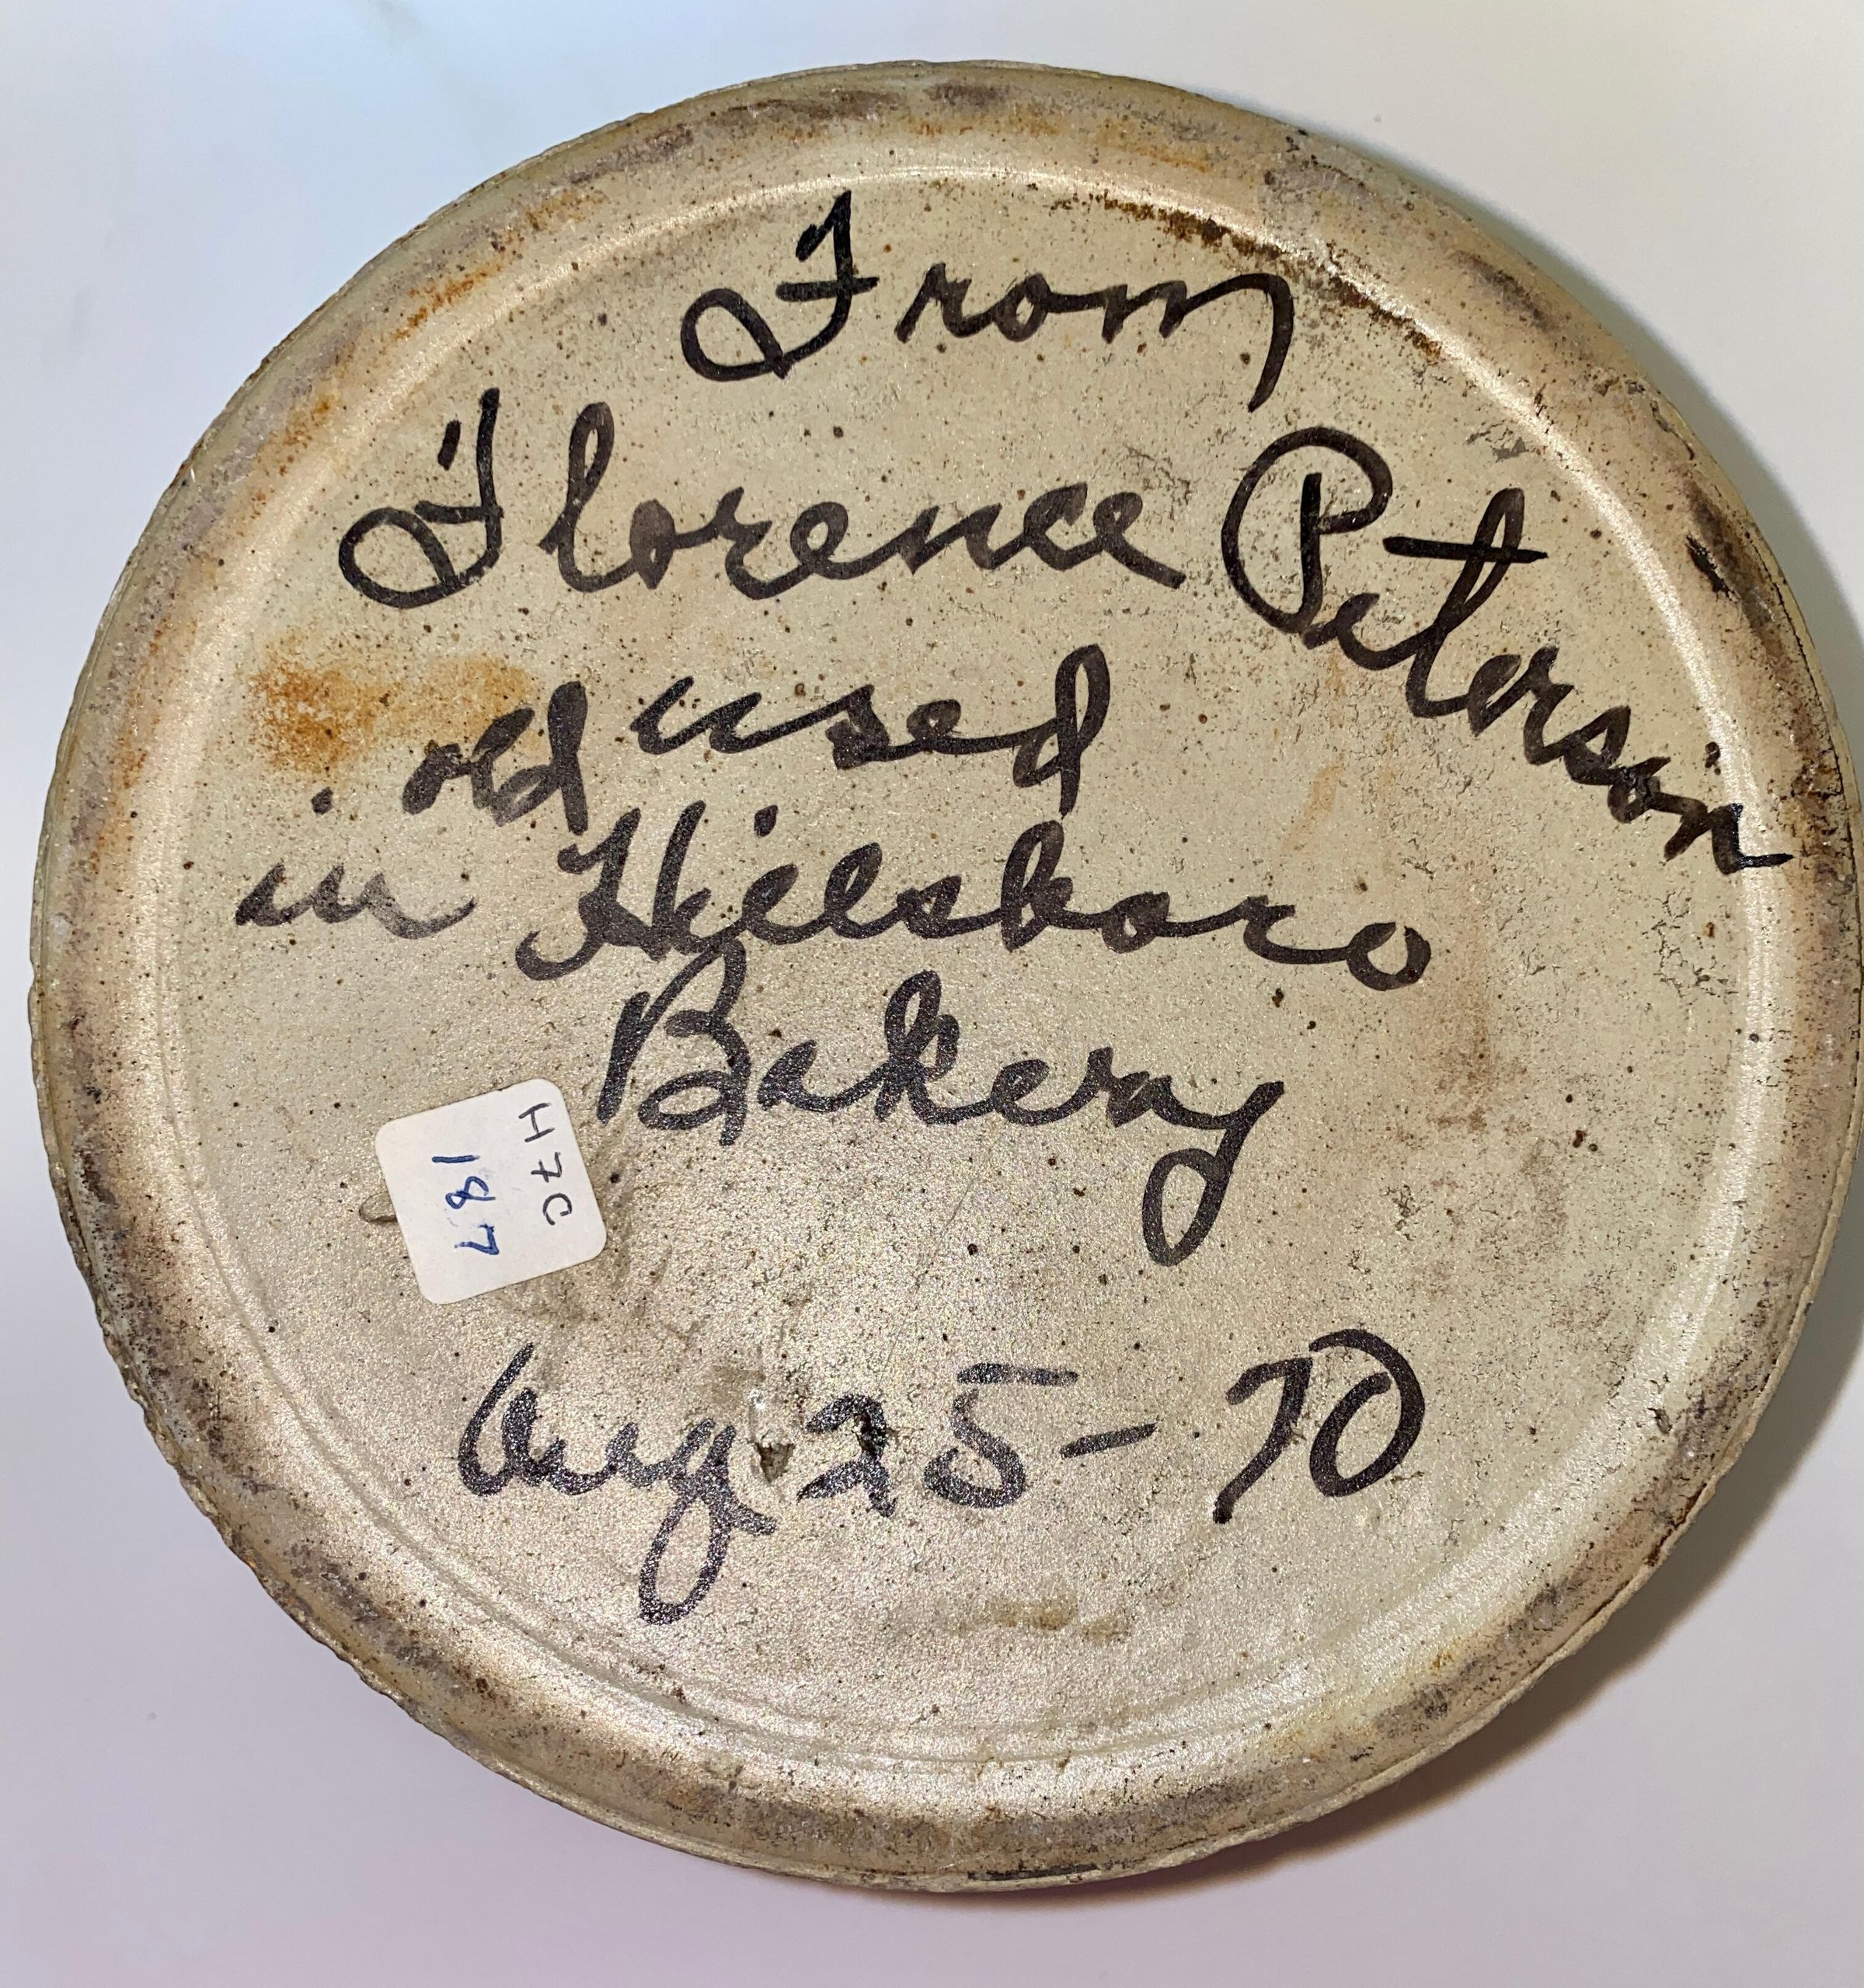 From
Florence Peterson
old used
in Hillsboro
Bakery
H7C
187
Aug 25-70